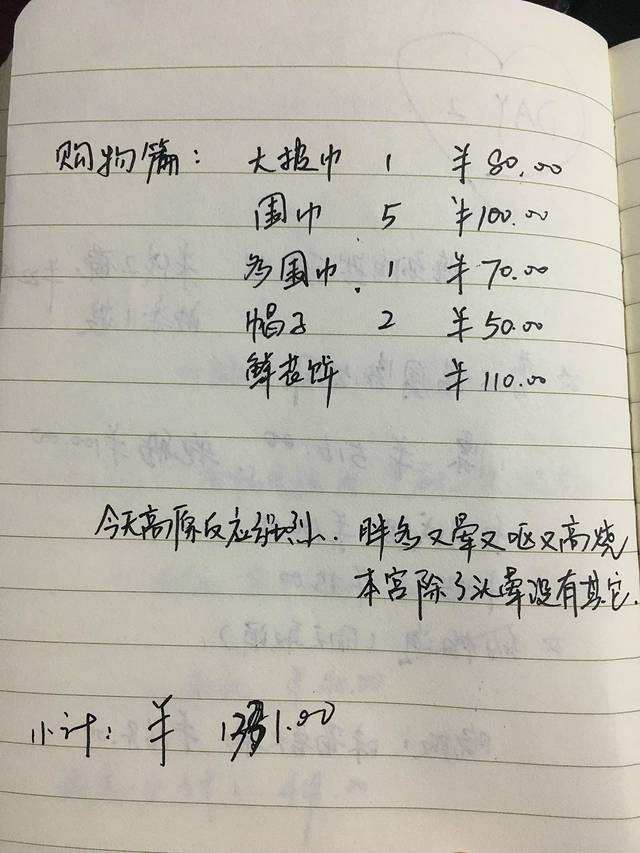 购物篇： 大披巾 1 ¥80.00
围巾 5 ¥100.00
为围巾 1 ¥70.00
帽子 2 ¥50.00
鲜花饼 ¥110.00
今天高原反应强烈. 胖冬又晕又呕又高烧
本宫除了头晕没有其它.
小计： ¥